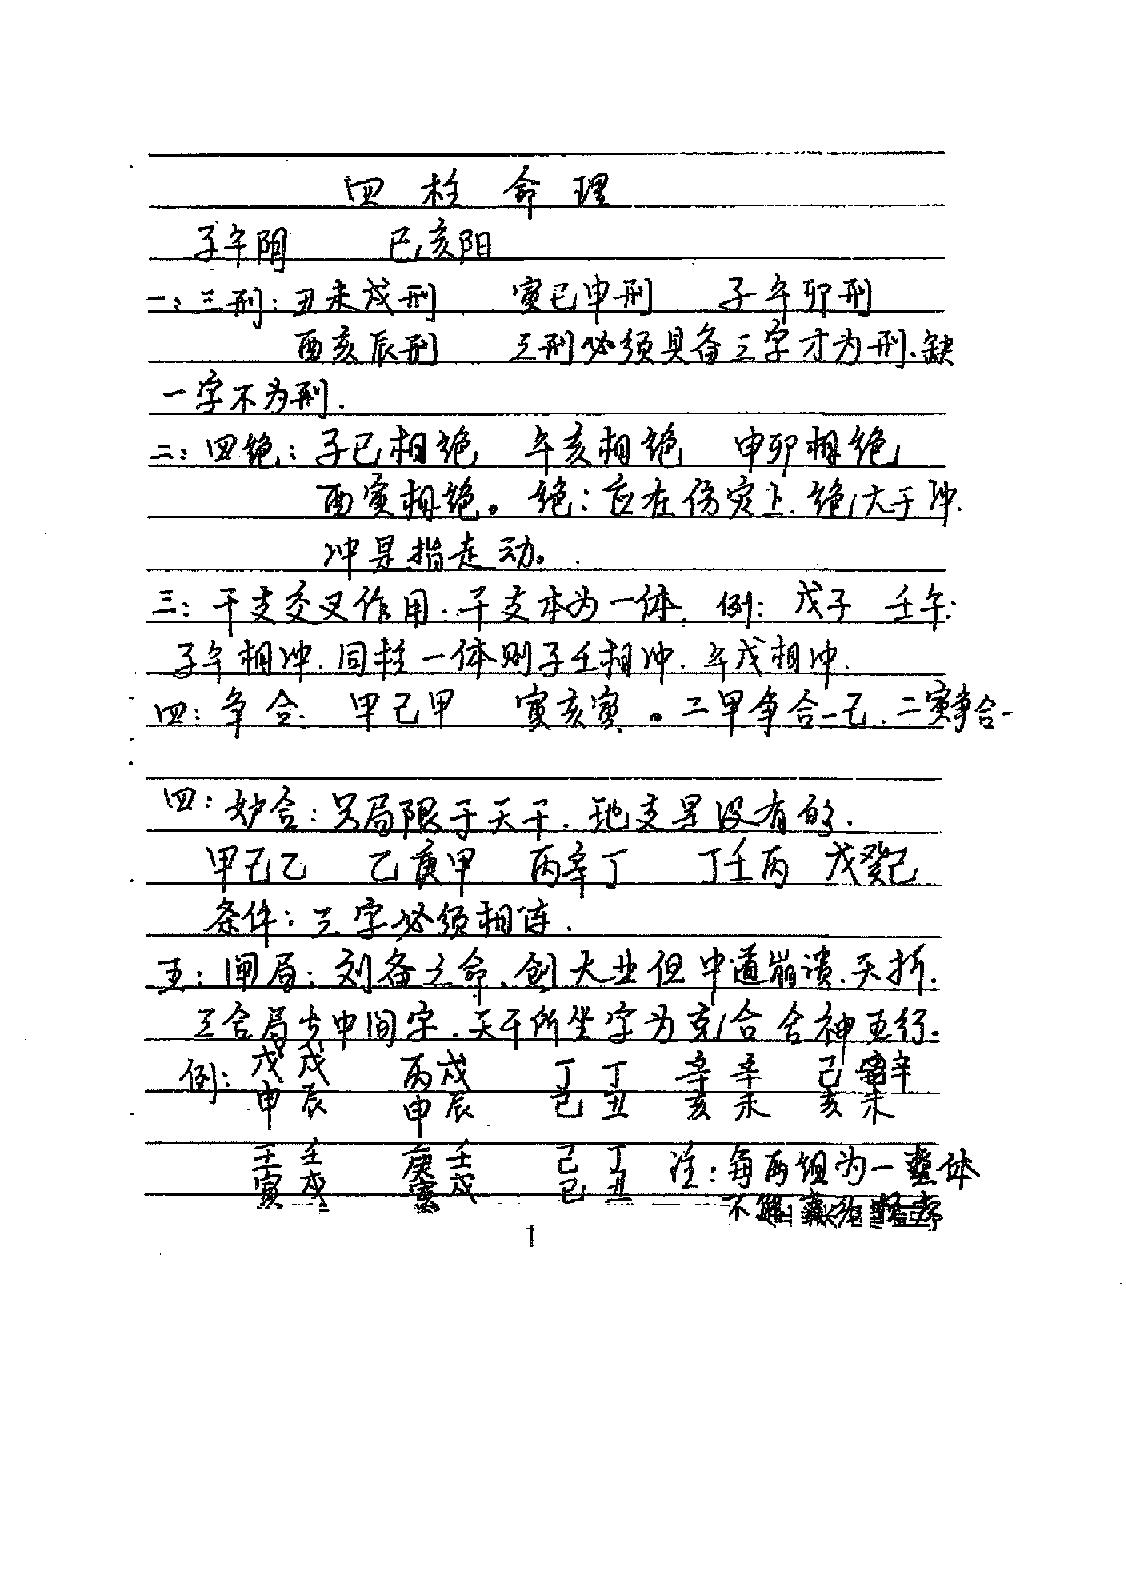 四柱命理
子午阴 已亥阳
一:三刑:丑未戌刑 寅巳申刑 子午卯刑
酉亥辰刑 三刑必须具备三字才为刑.缺
一字不为刑.
二:四绝:子巳相绝 午亥相绝 申卯相绝
酉寅相绝。绝:应在伤灾上.绝大于冲.
冲是指走动。
三:干支交叉作用:干支本为一体. 例: 戊子 壬午:
子午相冲.同柱一体则子壬相冲.午戊相冲.
四:争合. 甲己甲 寅亥寅。二甲争合一己.二寅争合一
四:妒合:只局限于天干.地支是没有的.
甲己乙 乙庚甲 丙辛丁 丁壬丙 戊癸己
条件:三字必须相连.
五:闸局:刘备之命.创大业但中道崩溃.夭折.
三合局少中间字.天干所坐字为克合合神五行.
例: 戊戊 丙戊 丁丁 辛辛 己辛
申辰 申辰 巳丑 亥未 亥未
壬壬 庚壬 己丁 注:每两组为一整体
寅戌 寅戌 巳丑 不
1